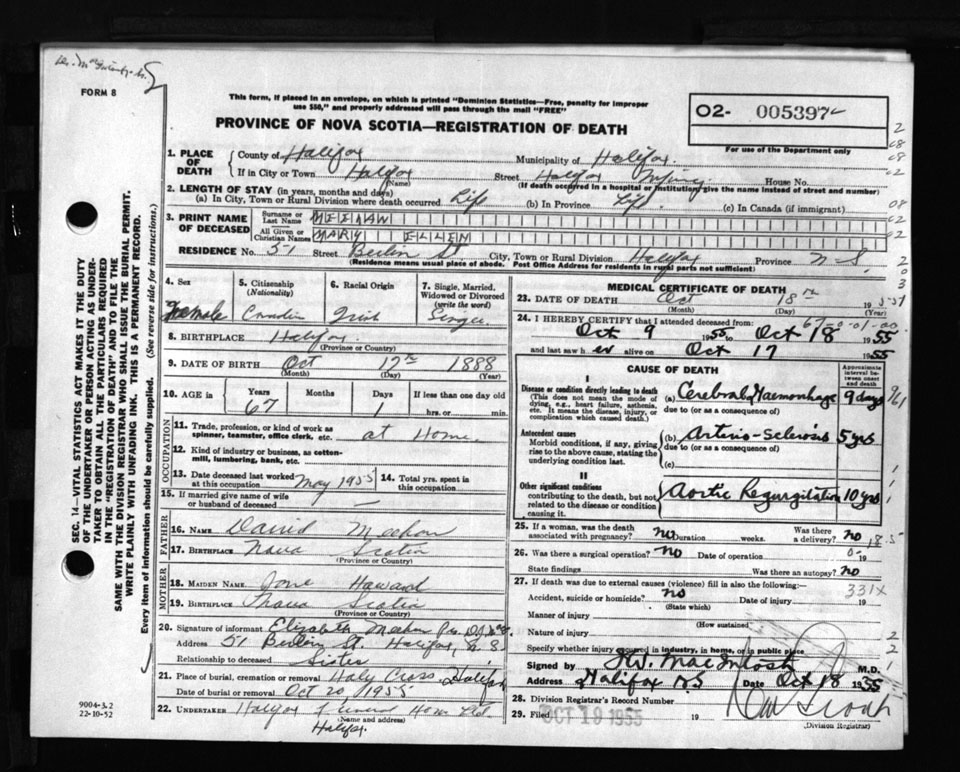 FORM 8
This form, if placed in an envelope, on which is printed "Dominion Statistics—Free, penalty for improper
use $50," and properly addressed will pass through the mail "FREE"
PROVINCE OF NOVA SCOTIA—REGISTRATION OF DEATH
O2- 005397
For use of the Department only
SEC. 14.—VITAL STATISTICS ACT MAKES IT THE DUTY
OF THE UNDERTAKER OR PERSON ACTING AS UNDER-
TAKER TO OBTAIN ALL THE PARTICULARS REQUIRED
IN THE "REGISTRATION OF DEATH" AND TO FILE THE
SAME WITH THE DIVISION REGISTRAR WHO SHALL ISSUE THE BURIAL PERMIT.
WRITE PLAINLY WITH UNFADING INK. THIS IS A PERMANENT RECORD.
Every item of information should be carefully supplied. (See reverse side for instructions.)
1. PLACE OF DEATH County of Halifax Municipality of Halifax
If in City or Town Halifax (Name) Street Halifax Infirmary House No.
(If death occurred in a hospital or institution, give the name instead of street and number)
2. LENGTH OF STAY (in years, months and days)
(a) In City, Town or Rural Division where death occurred Life (b) In Province Life (c) In Canada (if immigrant)
3. PRINT NAME OF DECEASED Surname or Last Name
All Given or Christian Names MARY ELLEN
RESIDENCE No. 51 Street St City, Town or Rural Division Halifax Province N.S.
(Residence means usual place of abode. Post Office Address for residents in rural parts not sufficient)
4. Sex Female
5. Citizenship (Nationality) Canadian
6. Racial Origin Irish
7. Single, Married, Widowed or Divorced (write the word) Single
8. BIRTHPLACE Halifax (Province or Country)
9. DATE OF BIRTH Oct (Month) 17th (Day) 1888 (Year)
10. AGE IN Years 67 Months Days 1 If less than one day old hrs. or min.
OCCUPATION
11. Trade, profession, or kind of work as spinner, teamster, office clerk, etc. at Home.
12. Kind of industry or business, as cotton-mill, lumbering, bank, etc.
13. Date deceased last worked at this occupation May 1955 14. Total yrs. spent in this occupation
15. If married give name of wife or husband of deceased —
FATHER
16. NAME David Meehan
17. BIRTHPLACE Nova Scotia (Province or Country)
MOTHER
18. MAIDEN NAME Jane Howard
19. BIRTHPLACE Nova Scotia (Province or Country)
20. Signature of informant Elizabeth Meehan
Address 51 St. Halifax, N.S.
Relationship to deceased Sister
21. Place of burial, cremation or removal Holy Cross Halifax
Date of burial or removal Oct 20/1955
22. UNDERTAKER Halifax Funeral Home Ltd.
(Name and address)
Halifax.
9004-3.2
22-10-52
MEDICAL CERTIFICATE OF DEATH
23. DATE OF DEATH Oct (Month) 18th (Day) 1955
24. I HEREBY CERTIFY that I attended deceased from:
Oct 9 1955 to Oct 18 1955
and last saw her alive on Oct 17 1955
CAUSE OF DEATH
Approximate interval between onset and death
I
Disease or condition directly leading to death (a) Cerebral Haemorrhage 9 days
(This does not mean the mode of dying, e.g., heart failure, asthenia, etc. It means the disease, injury, or complication which caused death.)
due to (or as a consequence of)
Antecedent causes (b) Arterio-Sclerosis 5 yrs
Morbid conditions, if any, giving rise to the above cause, stating the underlying condition last.
due to (or as a consequence of)
(c)
II
Other significant conditions Aortic Regurgitation 10 yrs
contributing to the death, but not related to the disease or condition causing it.
25. If a woman, was the death associated with pregnancy? no Duration weeks. Was there a delivery? no
26. Was there a surgical operation? no Date of operation
State findings Was there an autopsy? no
27. If death was due to external causes (violence) fill in also the following:—
Accident, suicide or homicide? no (State which) Date of injury 19
331X
Manner of injury (How sustained)
Nature of injury
Specify whether injury occurred in industry, in home, or in public place
Signed by H.W. MacIntosh M.D.
Address Halifax NS Date Oct 18 1955
28. Division Registrar's Record Number
29. Filed OCT 19 1955 19
(Division Registrar)